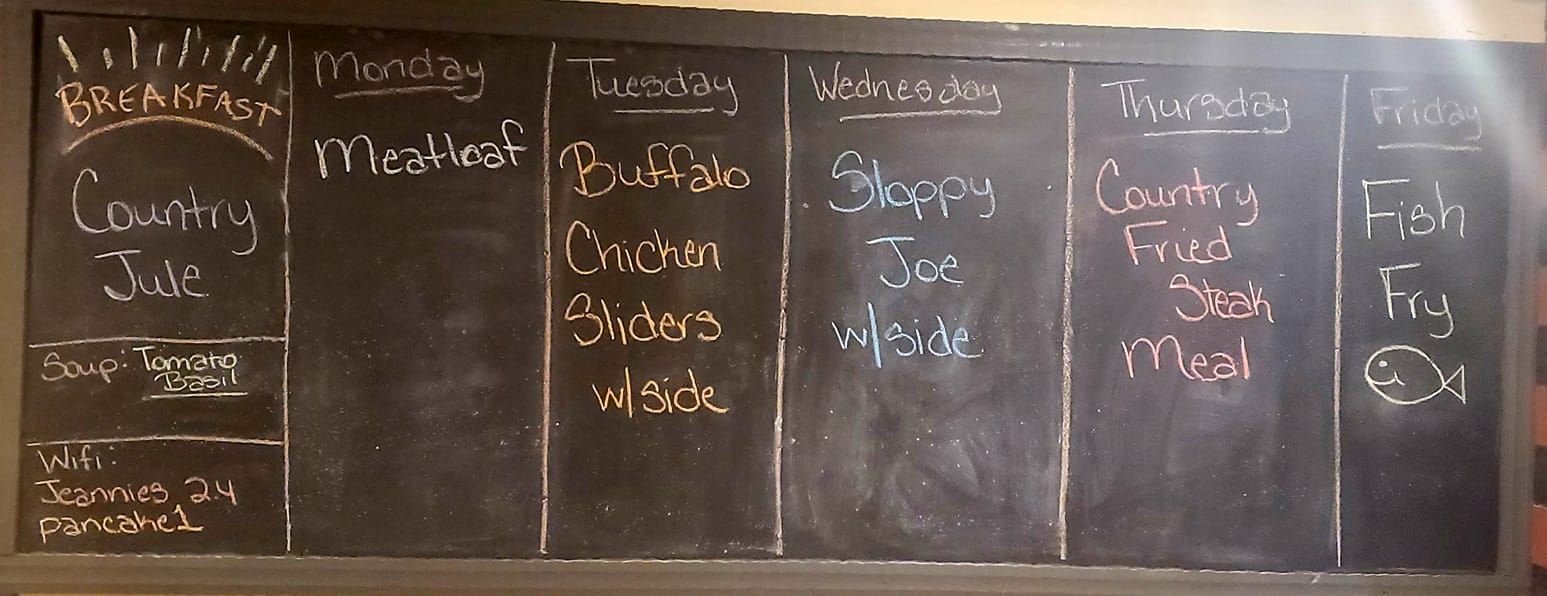 BREAKFAST
Country
Jule
Soup: Tomato
Basil
Wifi:
Jeannies 2.4
pancake1
Monday
Meatloaf
Tuesday
Buffalo
Chicken
Sliders
w/side
Wednesday
Sloppy
Joe
w/side
Thursday
Country
Fried
Steak
Meal
Friday
Fish
Fry